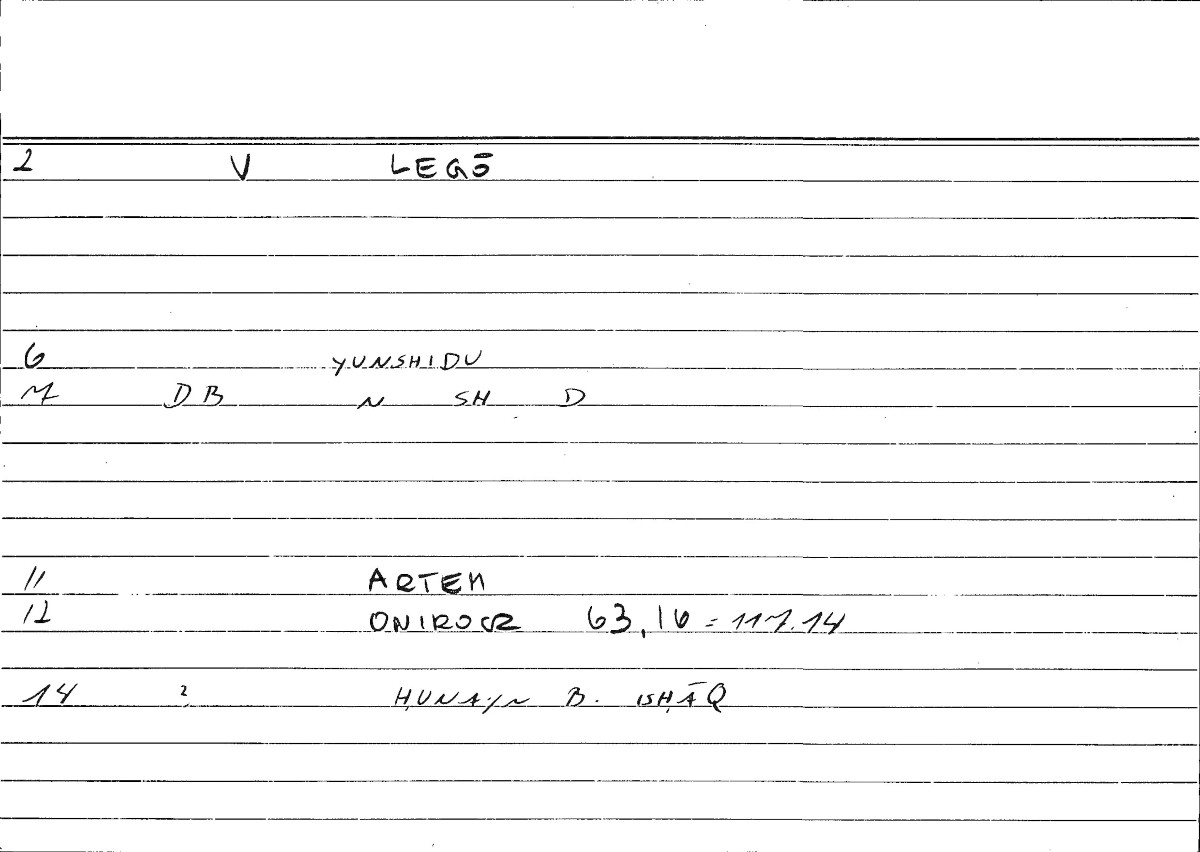 2 V LEGŌ
6 YUNSHIDU
7 DB N SH D
11 ARTEM
12 ONIROCR 63,16 = 117.14
14 2 ḤUNAYN B. ISḤĀQ